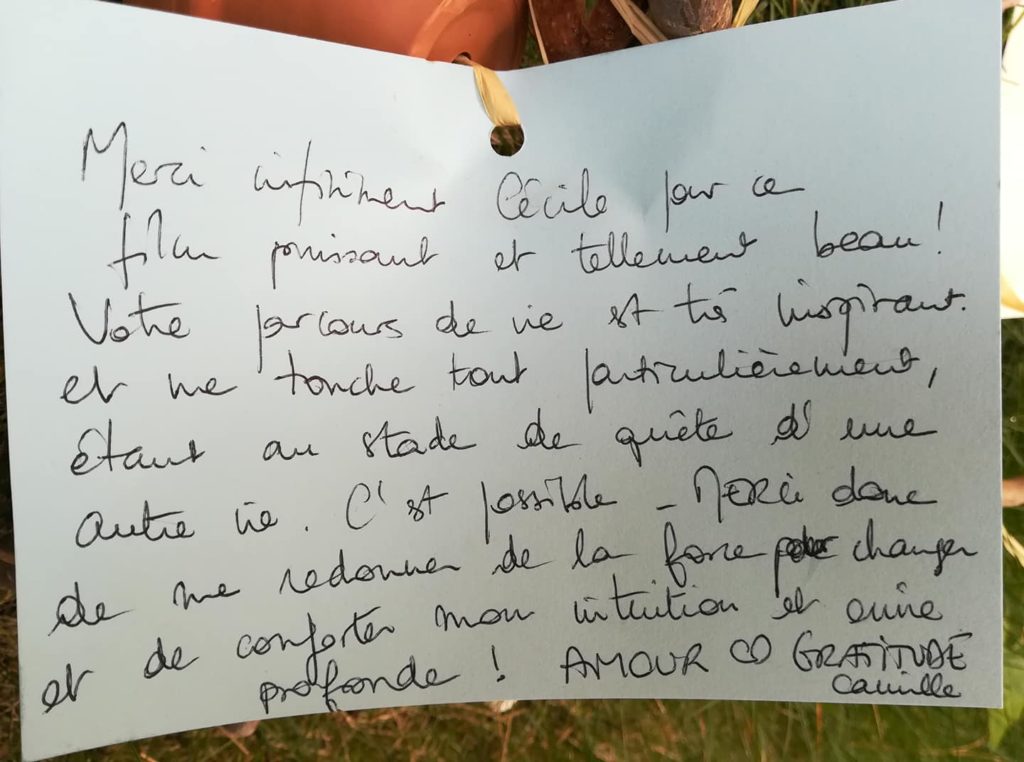 Merci infiniment Cécile pour ce
film puissant et tellement beau!
Votre parcours de vie est très inspirant.
et me touche tout particulièrement,
étant au stade de quête d'une
autre vie. C'est possible - MERCi donc
de me redonner de la force pour changer
et de conforter mon intuition et envie
profonde! AMOUR ♡ GRATITUDE
Camille